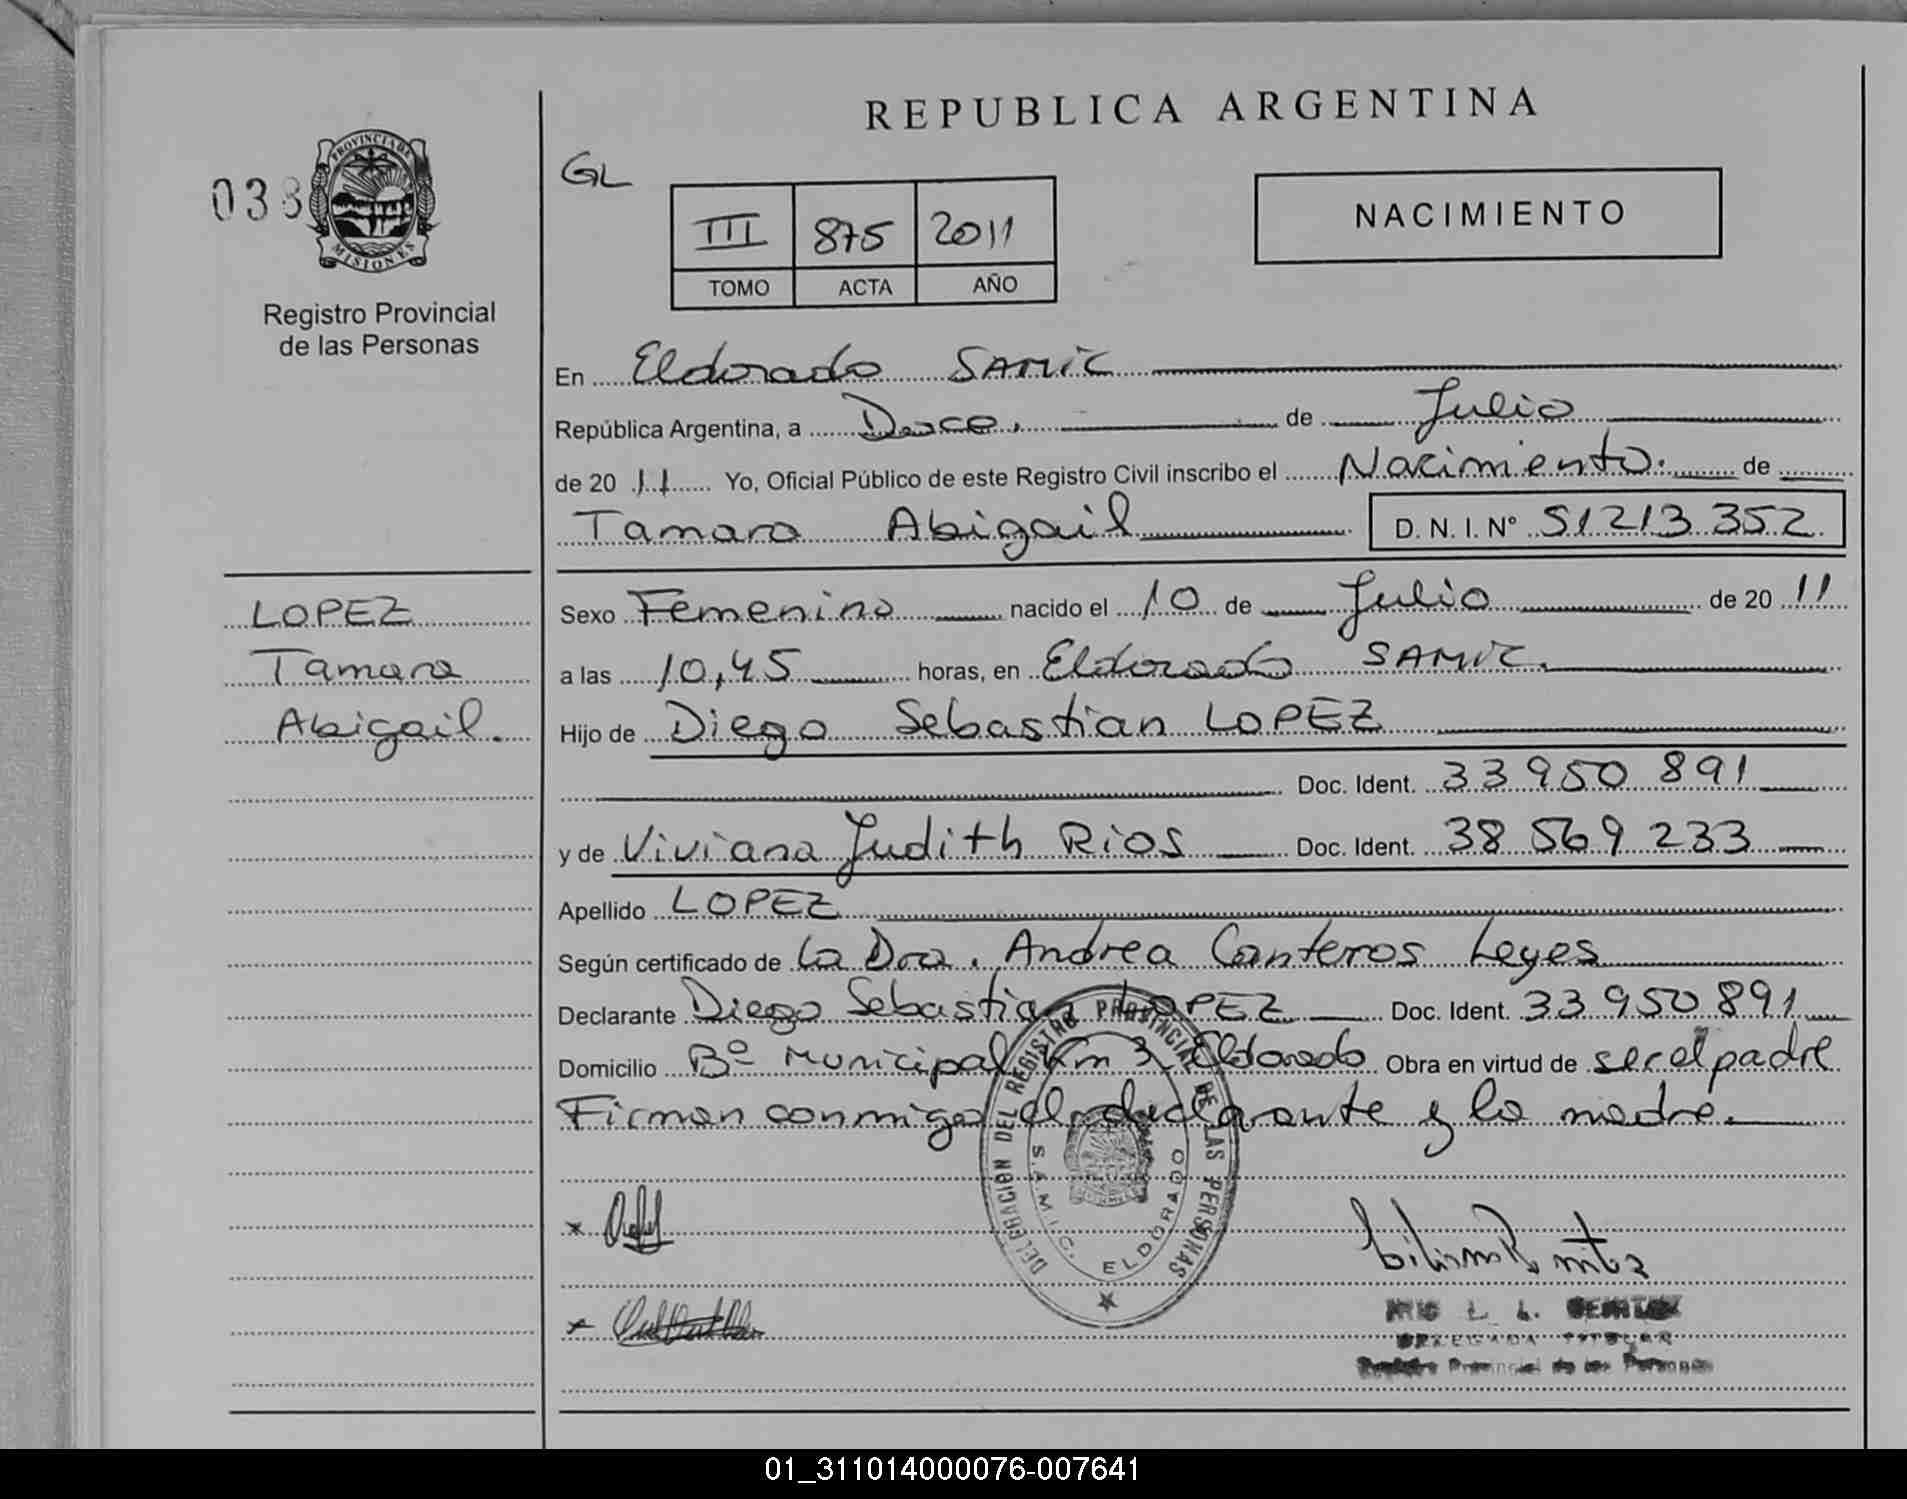 REPUBLICA ARGENTINA
038
PROVINCIA DE
MISIONES
Registro Provincial
de las Personas
GL
III 875 2011
TOMO ACTA AÑO
NACIMIENTO
En Eldorado SAMIC
República Argentina, a Doce. de Julio
de 20 11 Yo, Oficial Público de este Registro Civil inscribo el Nacimiento. de
Tamara Abigail D. N. I. N° 51213352
LOPEZ
Tamara
Abigail.
Sexo Femenino nacido el 10 de Julio de 20 11
a las 10,45 horas, en Eldorado SAMIC.
Hijo de Diego Sebastian LOPEZ
Doc. Ident. 33 950 891
y de Viviana Judith Rios Doc. Ident. 38 569 233
Apellido LOPEZ
Según certificado de la Dra. Andrea Canteros Leyes
Declarante Diego Sebastian LOPEZ Doc. Ident. 33 950 891
Domicilio Bº Municipal Km 3 Eldorado Obra en virtud de ser el padre
Firman conmigo el declarante y la madre.
DELEGACION DEL REGISTRO PROVINCIAL DE LAS PERSONAS
S.A.M.I.C. ELDORADO
L. L.
DELEGADA TITULAR
Registro Provincial de las Personas
01_311014000076-007641